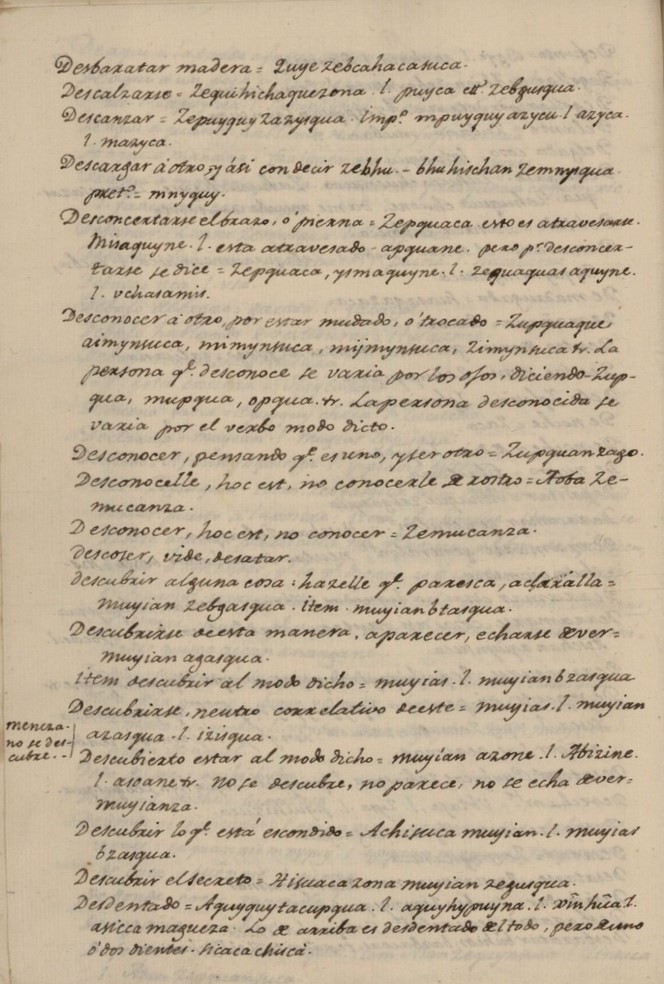 Desbaratar madera = Quye zebcahacasuca.
Descalzarse = Zequihichaquezona . l . puyca etc. zebgusqua.
Descanzar = Zepuyquyzazysqua . Imp.º mpuyquyazycu . l azyca.
l . mazyca.
Descargar à otro, y ási con decir zebhu. - bhuhischan zemnysqua
pret.º = mnyquy.
Desconcertarse el brazo, ó pierna = Zepquaca esto es atravesarse.
Misaquyne . l . esta atravesado - apquane. pero p.ª desconcer-
tarse se dice = zepquaca, ysmaquyne . l . zequaquas aquyne.
l . vchasamis.
Desconocer à otro, por estar mudado, o trocado = Zupquaque
aimynsuca, mimynsuca, mijmynsuca, zimynsuca &. La
persona q.e desconoce se varia por los ojos, diciendo - Zup-
qua, mupqua, opqua. &. La persona desconocida se
varia por el verbo modo dicto.
Desconocer, pensando q.e es uno, y ser otro = Zupquanzago.
Desconocelle, hoc est, no conocerle de rostro = Aoba ze-
mucanza.
Desconocer, hoc est, no conocer = Zemucanza.
descoser, vide, desatar.
descubrir alguna cosa : hazelle q.e paresca, aclarálla =
muyian zebgasqua . item . muyianbtasqua.
Descubrirse de esta manera, aparecer, echarse de ver =
muyian agasqua.
item descubrir al modo dicho = muyias . l . muyian bzasqua
Descubrirse, neutro correlativo de este = muyias . l . muyian
azasqua . l . izisqua.
meneza-
no se des-
cubre. -
Descubierto estar al modo dicho = muyian azone . l . Abizine.
l . asoane &. No se descubre, no parece, no se echa de ver -
muyianza.
Descubrir lo q.e está escondido = Achisuca muyian . l . muyias
bzasqua.
Descubrir el secreto = Hisuacazona muyian zegusqua.
Desdentado = Aquyquytacupqua . l . aquyhypuyna . l .
asicca magueza . Lo de arriba es desdentado del todo, pero de uno
ó dos dientes - sicacachisca.